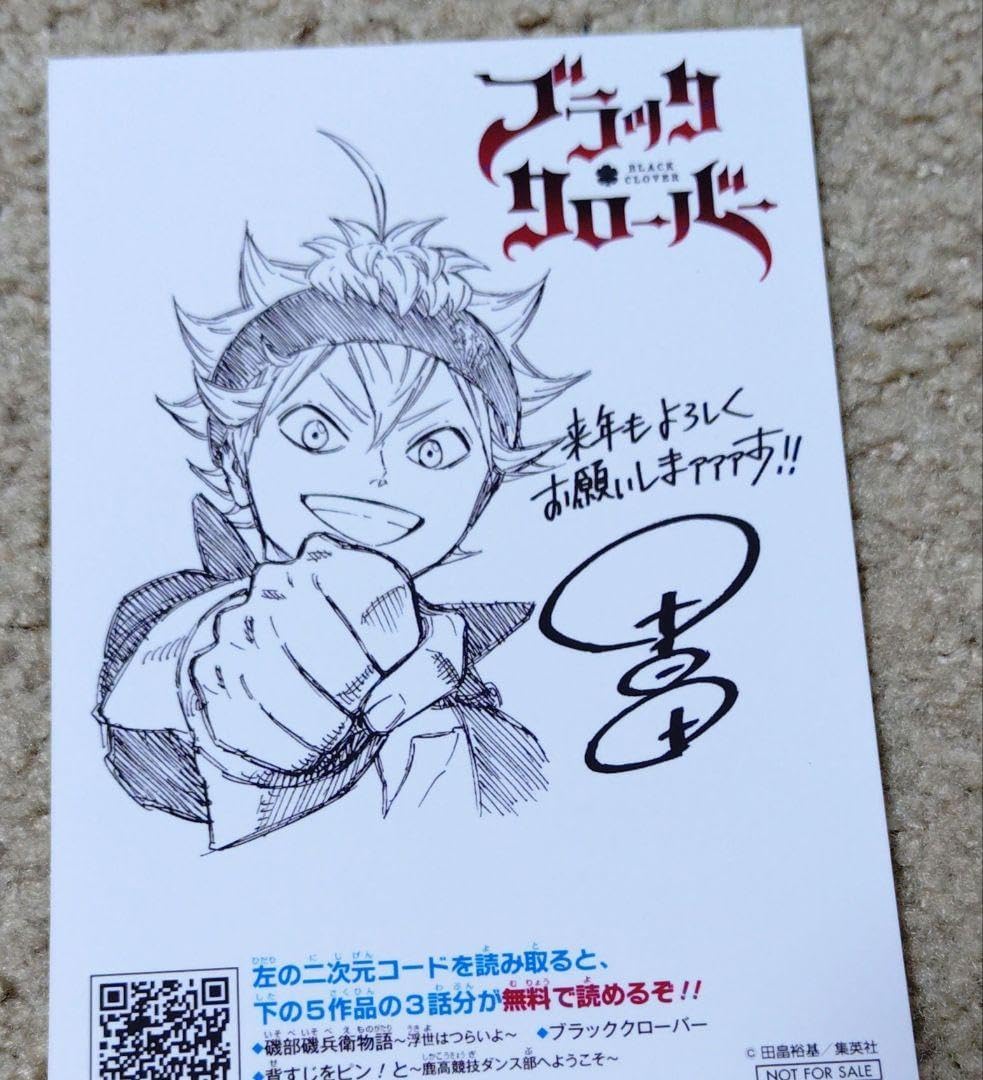 ブラック
クローバー
BLACK
CLOVER
来年もよろしく
お願いしまァァァす!!
左の二次元コードを読み取ると、
下の5作品の3話分が無料で読めるぞ!!
◆磯部磯兵衛物語～浮世はつらいよ～ ◆ブラッククローバー
◆背すじをピン!と～鹿高競技ダンス部へようこそ～
© 田畠裕基／集英社
NOT FOR SALE